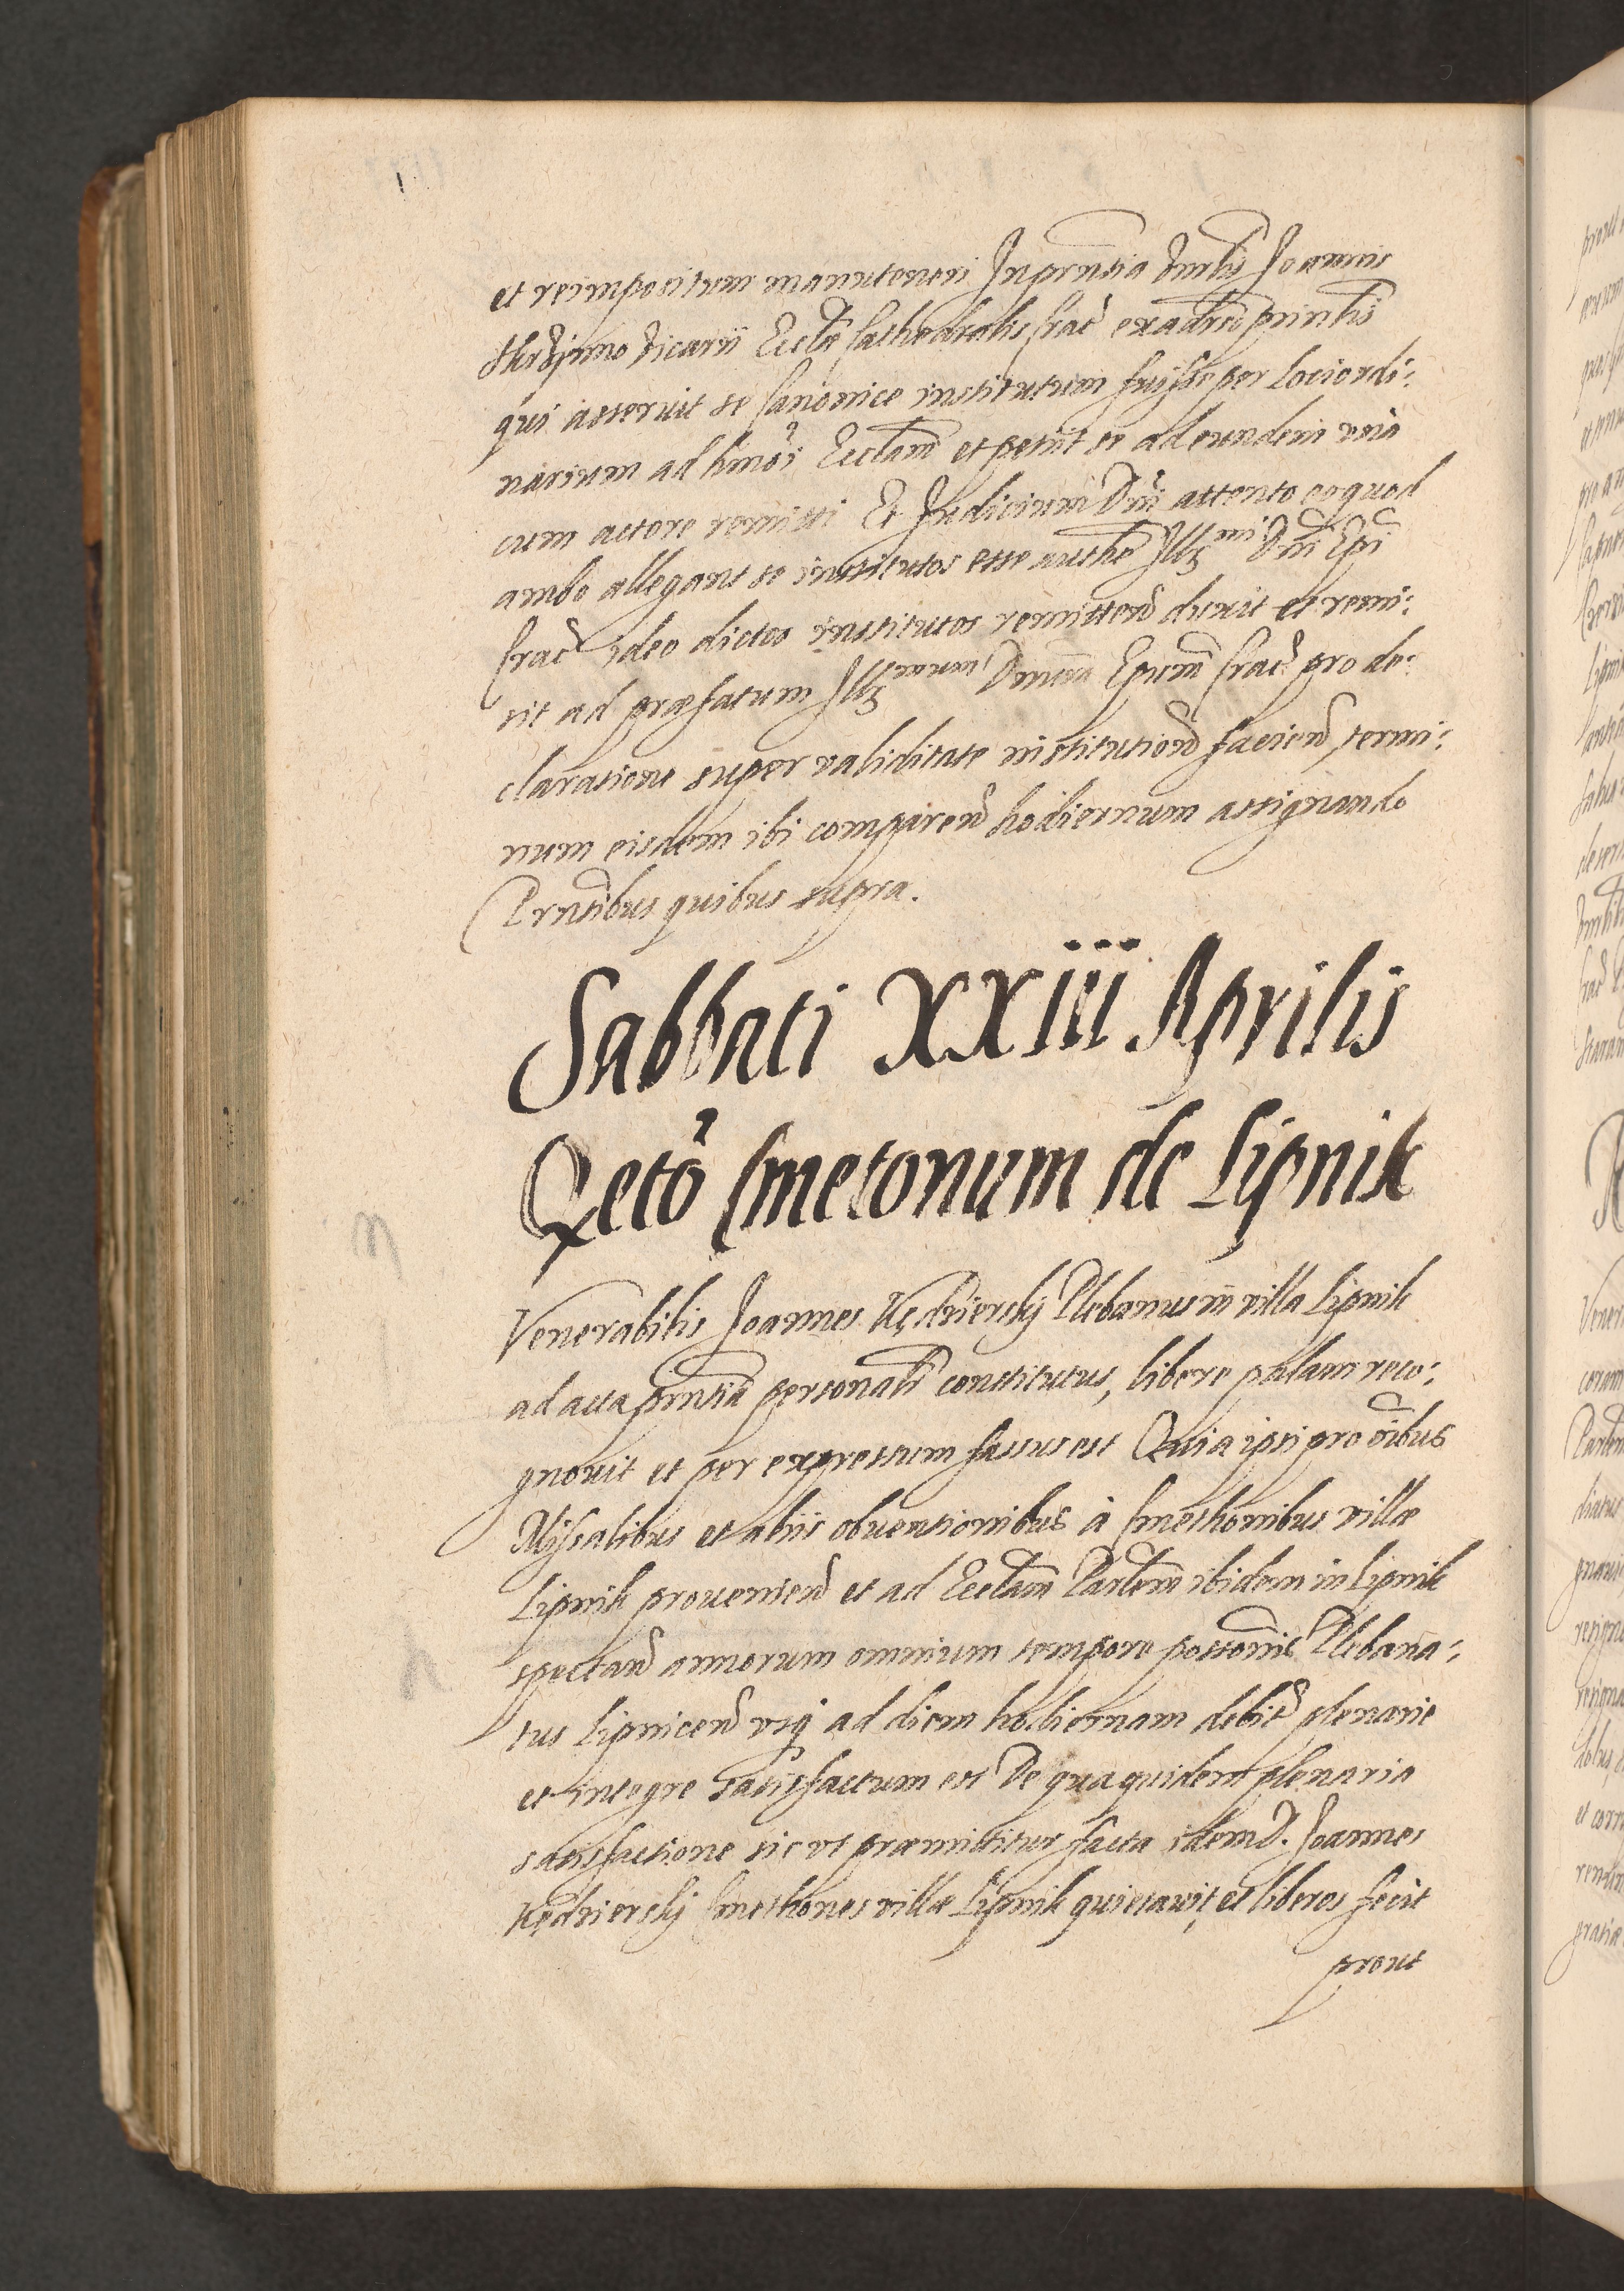 et reimpositum manuteneri Inprntia Vnrblis Joannis
Vicarii Eccłæ Cathedralis Crac̃ exadṽso prñtis
qui asseruit se Canonice institutum fuisse per Lociordi:
narium ad hmõi Eccłam et petiit se ad eundem vnã
cum actore remitti Et Judicium Dñi attento eo quod
ambo allegant se institutos esse authe Illmi Dñi Epi
Crac̃ ideo dictos institutos remittend duxit et remi:
sit ad præfatum Illmmum Dnum Epum Crac̃ pro de:
claratione super validitate institutiond faciend termi:
num eisdem ibi comparend hodiernum assignando
Prntibus quibus supra.
Sabbati XXiii Aprilis
Qetõ Cmetonum de Lipnik
Venerabilis Joannes Kędzierskij Plebanus in villa Lipnik
ad acta prñtia personalr constitutus, libere palam reco:
gnouit et per expressum fassus est Quia ipsi pro õibus
Missalibus et aliis obuentionibus à Cmethonibus villæ
Lipnik proueniend et ad Eccłam Parlem ibidem in Lipnik
spectand annorum omnium tempore possonis Plebana:
tus Lipnicend vsq ad diem hodiernam debite plenarie
et integre satisfactum est De qua quidem plenaria
satisfactione sic vt præmittitur facta idem D. Joannes
Kędzierskij Cmethones villæ Lipnik quietauit, et liberos fecit
prout